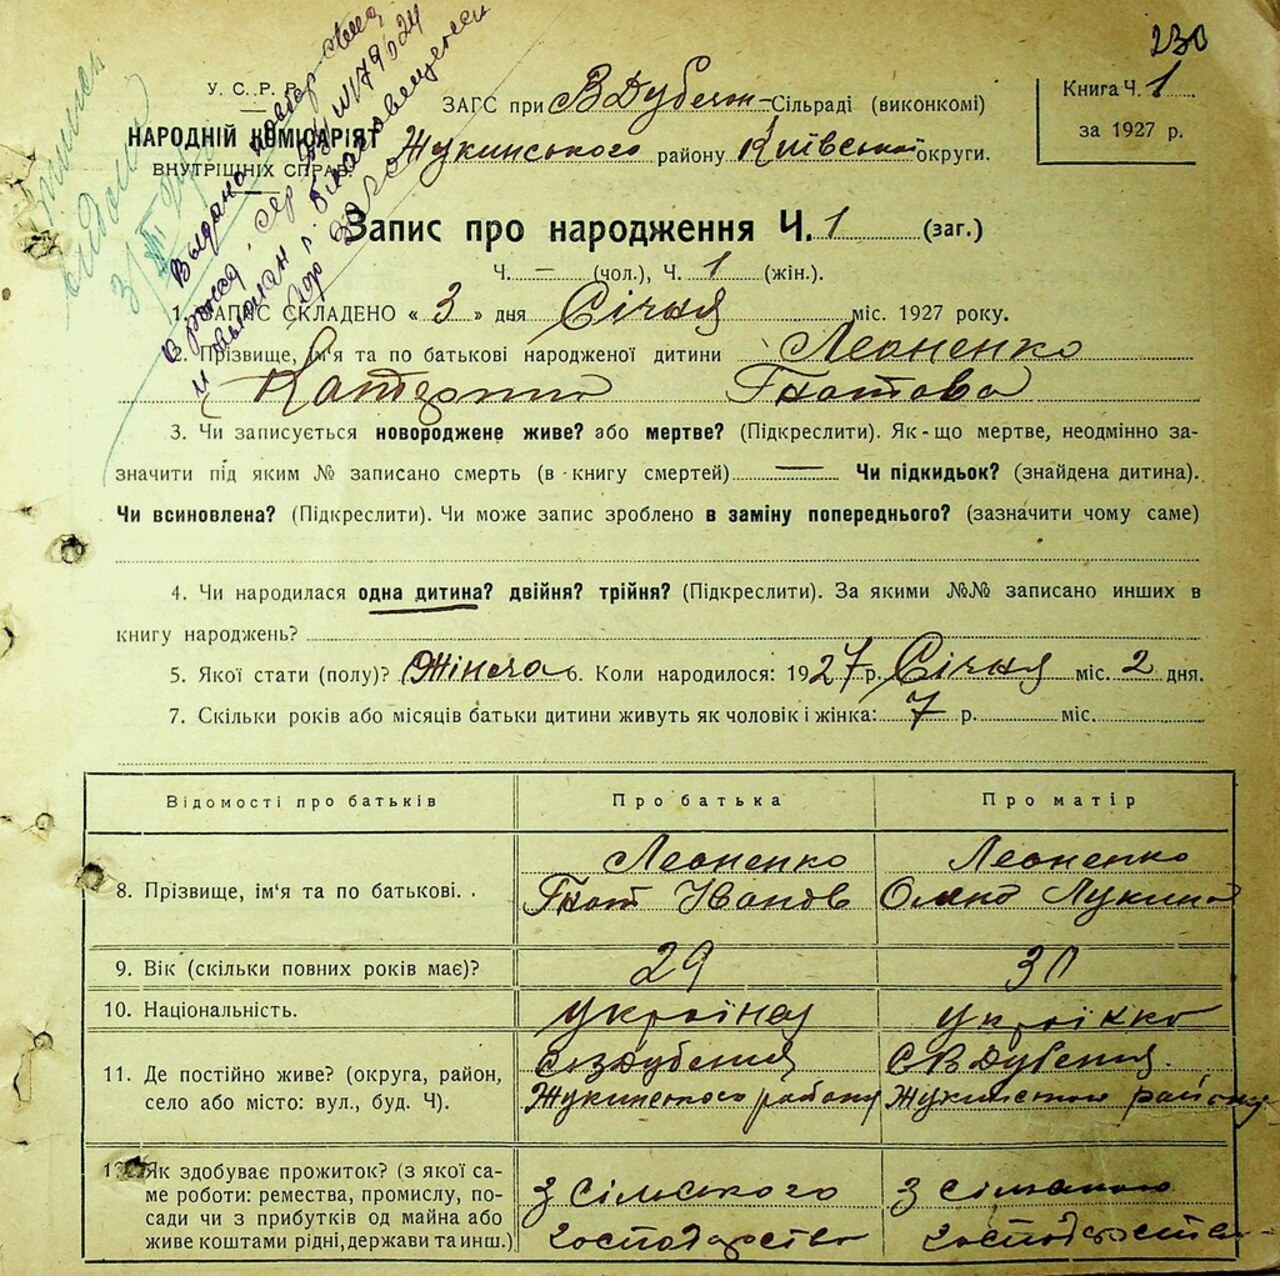 230
У. С. Р. Р.
НАРОДНІЙ КОМІСАРІЯТ
ВНУТРІШНІХ СПРАВ
ЗАГС при В Дубечн-Сільраді (виконкомі)
Жукинського району Київської округи.
Книга Ч. 1
за 1927 р.
Видано
Запис про народження Ч. 1 (заг.)
Ч. — (чол.), Ч. 1 (жін.).
1. ЗАПИС СКЛАДЕНО « 3 » дня Січня міс. 1927 року.
2. Прізвище, ім'я та по батькові народженої дитини Леоненко
Катерина Гнатова
3. Чи записується новороджене живе? або мертве? (Підкреслити). Як-що мертве, неодмінно за-
значити під яким № записано смерть (в книгу смертей) — Чи підкидьок? (знайдена дитина).
Чи всиновлена? (Підкреслити). Чи може запис зроблено в заміну попереднього? (зазначити чому саме)
4. Чи народилася одна дитина? двійня? трійня? (Підкреслити). За якими №№ записано инших в
книгу народжень?
5. Якої стати (полу)? Жіноча 6. Коли народилося: 1927 р. Січня міс. 2 дня.
7. Скільки років або місяців батьки дитини живуть як чоловік і жінка: 7 р. міс.
Відомості про батьків Про батька Про матір
8. Прізвище, ім'я та по батькові. . Леоненко Гнат Іванов Леоненко Лукина
9. Вік (скільки повних років має)? 29 30
10. Національність. українец українка
11. Де постійно живе? (округа, район, село або місто: вул., буд. Ч). Жукинського району С В Дубечня Жукинського району
12. Як здобуває прожиток? (з якої са-
ме роботи: ремества, промислу, по-
сади чи з прибутків од майна або
живе коштами рідні, держави та инш.) З сільського господарства З сільського господарства